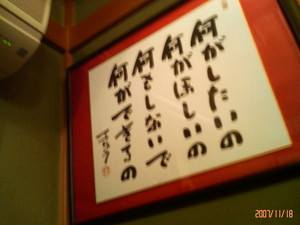 何がしたいの
何がほしいの
何をしないで
何ができるの
2007/11/18